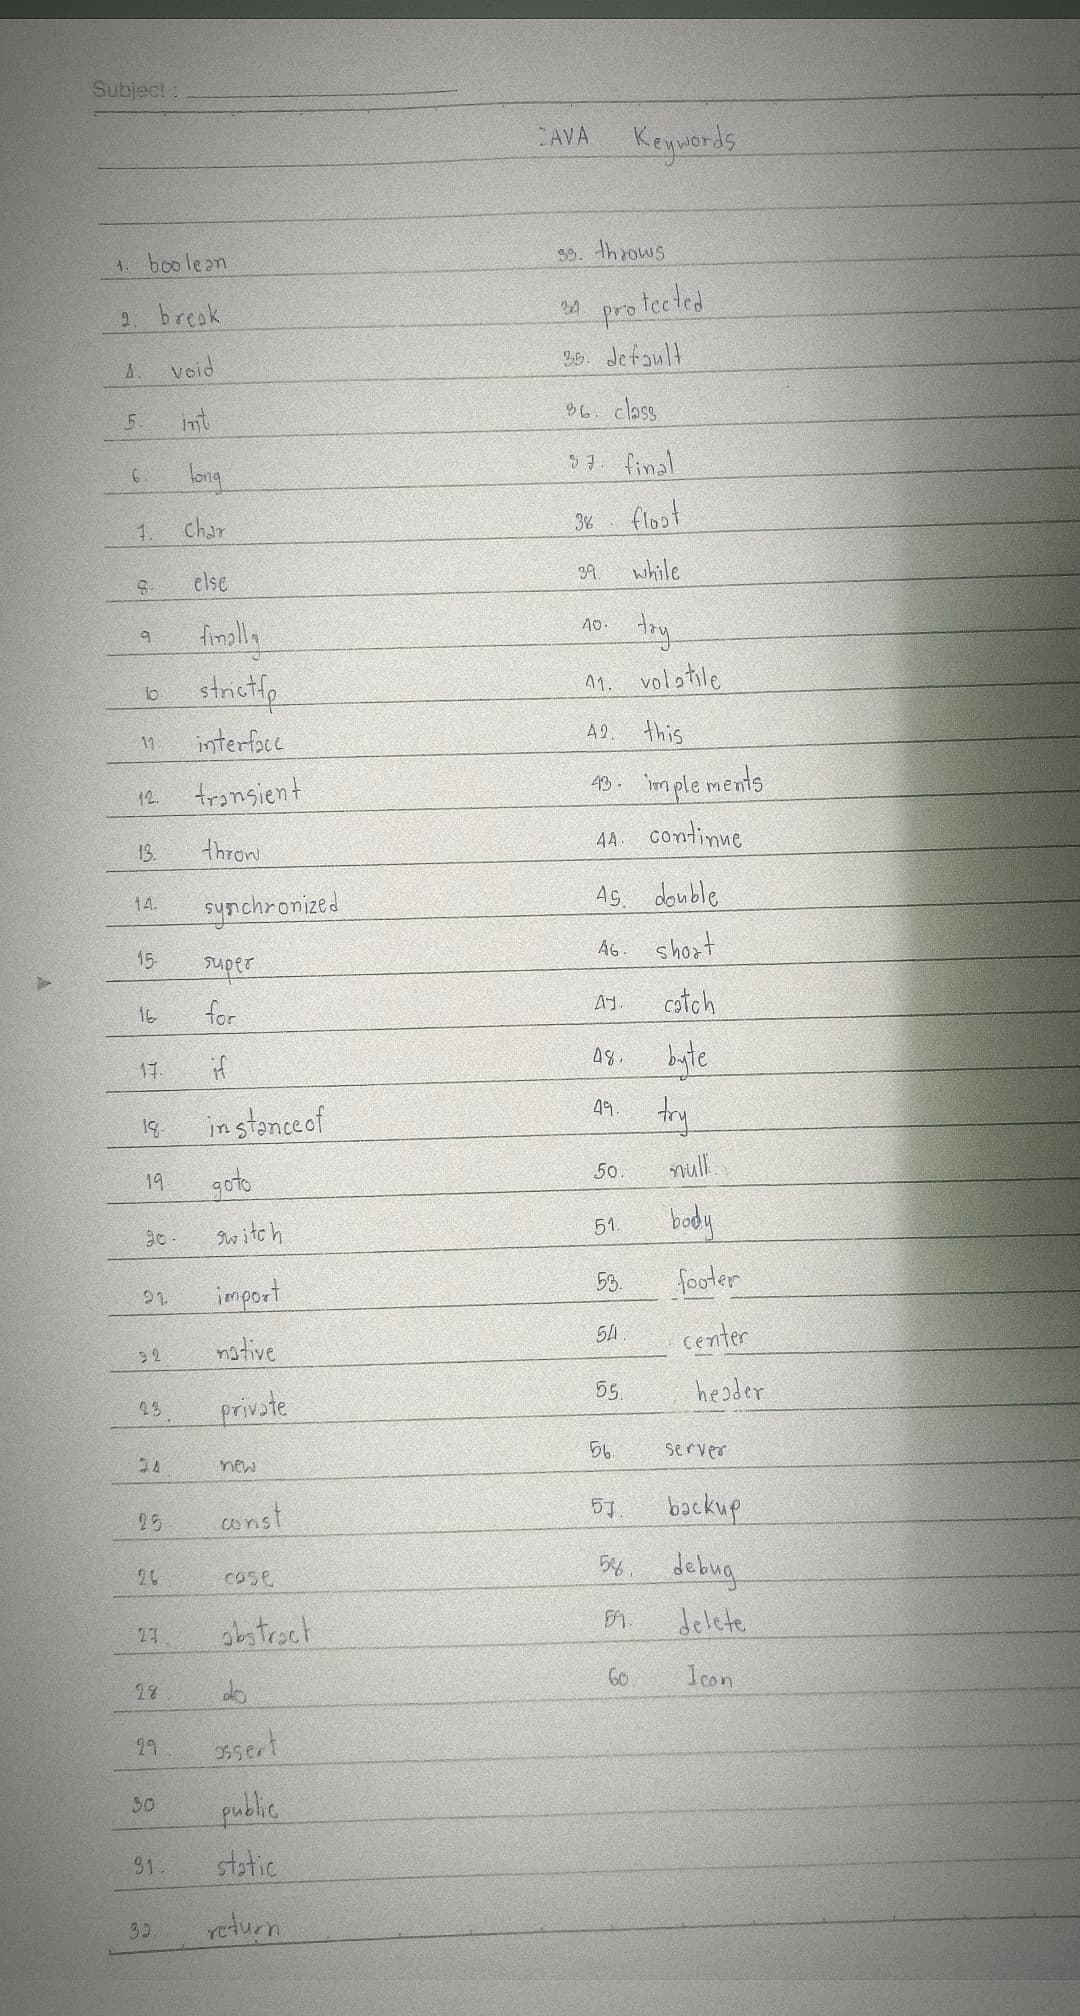 Subject :
JAVA Keywords
1. boolean
2. break
4. void
5. int
6. long
7. char
8. else
9 finally
10 strictfp
11 interface
12. transient
13. throw
14. synchronized
15. super
16 for
17. if
18. instanceof
19 goto
20. switch
21. import
22 native
23. private
24. new
25. const
26. case
27. abstract
28. do
29. assert
30 public
31. static
32 return
33. throws
34. protected
35. default
36. class
37. final
38. float
39. while
40. try
41. volatile
42. this
43. implements
44. continue
45. double
46. short
47. catch
48. byte
49. try
50. null
51. body
53. footer
54. center
55. header
56. server
57. backup
58. debug
59. delete
60 Icon